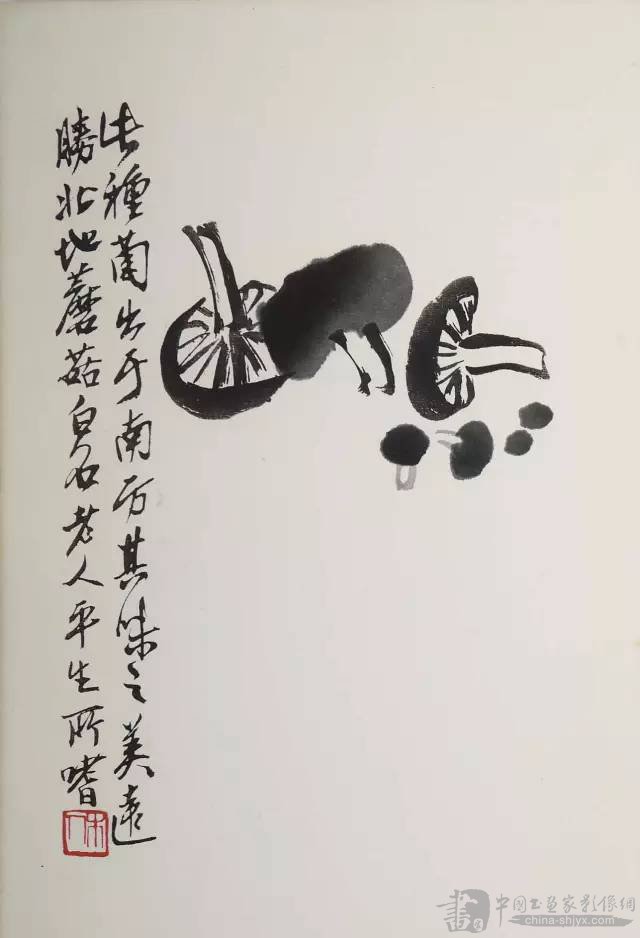 此種菌出于南方其味之美遠
勝北地蘑菇白石老人平生所嗜
木人
書
中國书画家影像網
china-shjyx.com